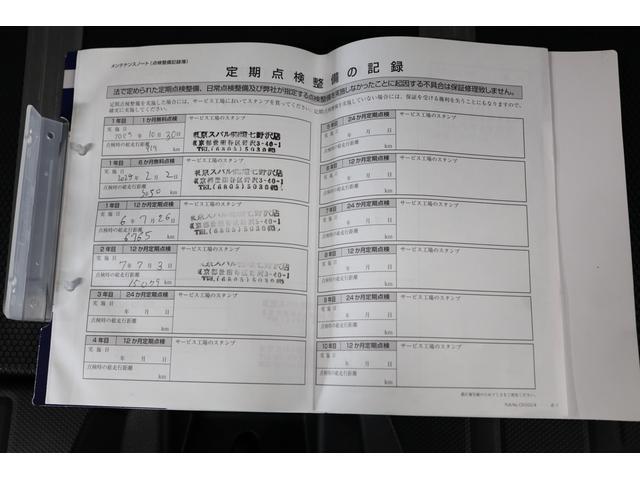 メンテナンスノート(点検整備記録簿)
定期点検整備の記録
法で定められた定期点検整備、日常点検整備及び弊社が指定する点検整備を実施しなかったことに起因する不具合は保証修理致しません。
定期点検整備を実施した場合には、サービス工場においてスタンプを貰ってください。定期
点検整備を実施していない場合には、保証を受ける権利を失うことにもなりますので、
確実に実施してください。
1年目 1か月無料点検 サービス工場のスタンプ
実施日 年 10月 30日
点検時の総走行距離
km
東京スバル㈱環七野沢店
東京都世田谷区野沢3-40-1
TEL(6805)5030㈹
1年目 6か月無料点検 サービス工場のスタンプ
実施日 2024年 2月 2日
点検時の総走行距離
3050 km
東京スバル㈱環七野沢店
東京都世田谷区野沢3-40-1
TEL(6805)5030㈹
1年目 12か月定期点検 サービス工場のスタンプ
実施日
6年 7月 26日
点検時の総走行距離
6765 km
東京スバル㈱環七野沢店
東京都世田谷区野沢3-40-1
TEL(6805)5030㈹
2年目 12か月定期点検 サービス工場のスタンプ
実施日
7年 7月 3日
点検時の総走行距離
km
東京スバル㈱環七野沢店
東京都世田谷区野沢3-40-1
TEL(6805)5030㈹
3年目 24か月定期点検 サービス工場のスタンプ
実施日
年 月 日
点検時の総走行距離
km
4年目 12か月定期点検 サービス工場のスタンプ
実施日
年 月 日
点検時の総走行距離
km
5年目 24か月定期点検 サービス工場のスタンプ
実施日
年 月 日
点検時の総走行距離
km
6年目 12か月定期点検 サービス工場のスタンプ
実施日
年 月 日
点検時の総走行距離
km
7年目 24か月定期点検 サービス工場のスタンプ
実施日
年 月 日
点検時の総走行距離
km
8年目 12か月定期点検 サービス工場のスタンプ
実施日
年 月 日
点検時の総走行距離
km
9年目 24か月定期点検 サービス工場のスタンプ
実施日
年 月 日
点検時の総走行距離
km
10年目 12か月定期点検 サービス工場のスタンプ
実施日
年 月 日
点検時の総走行距離
km